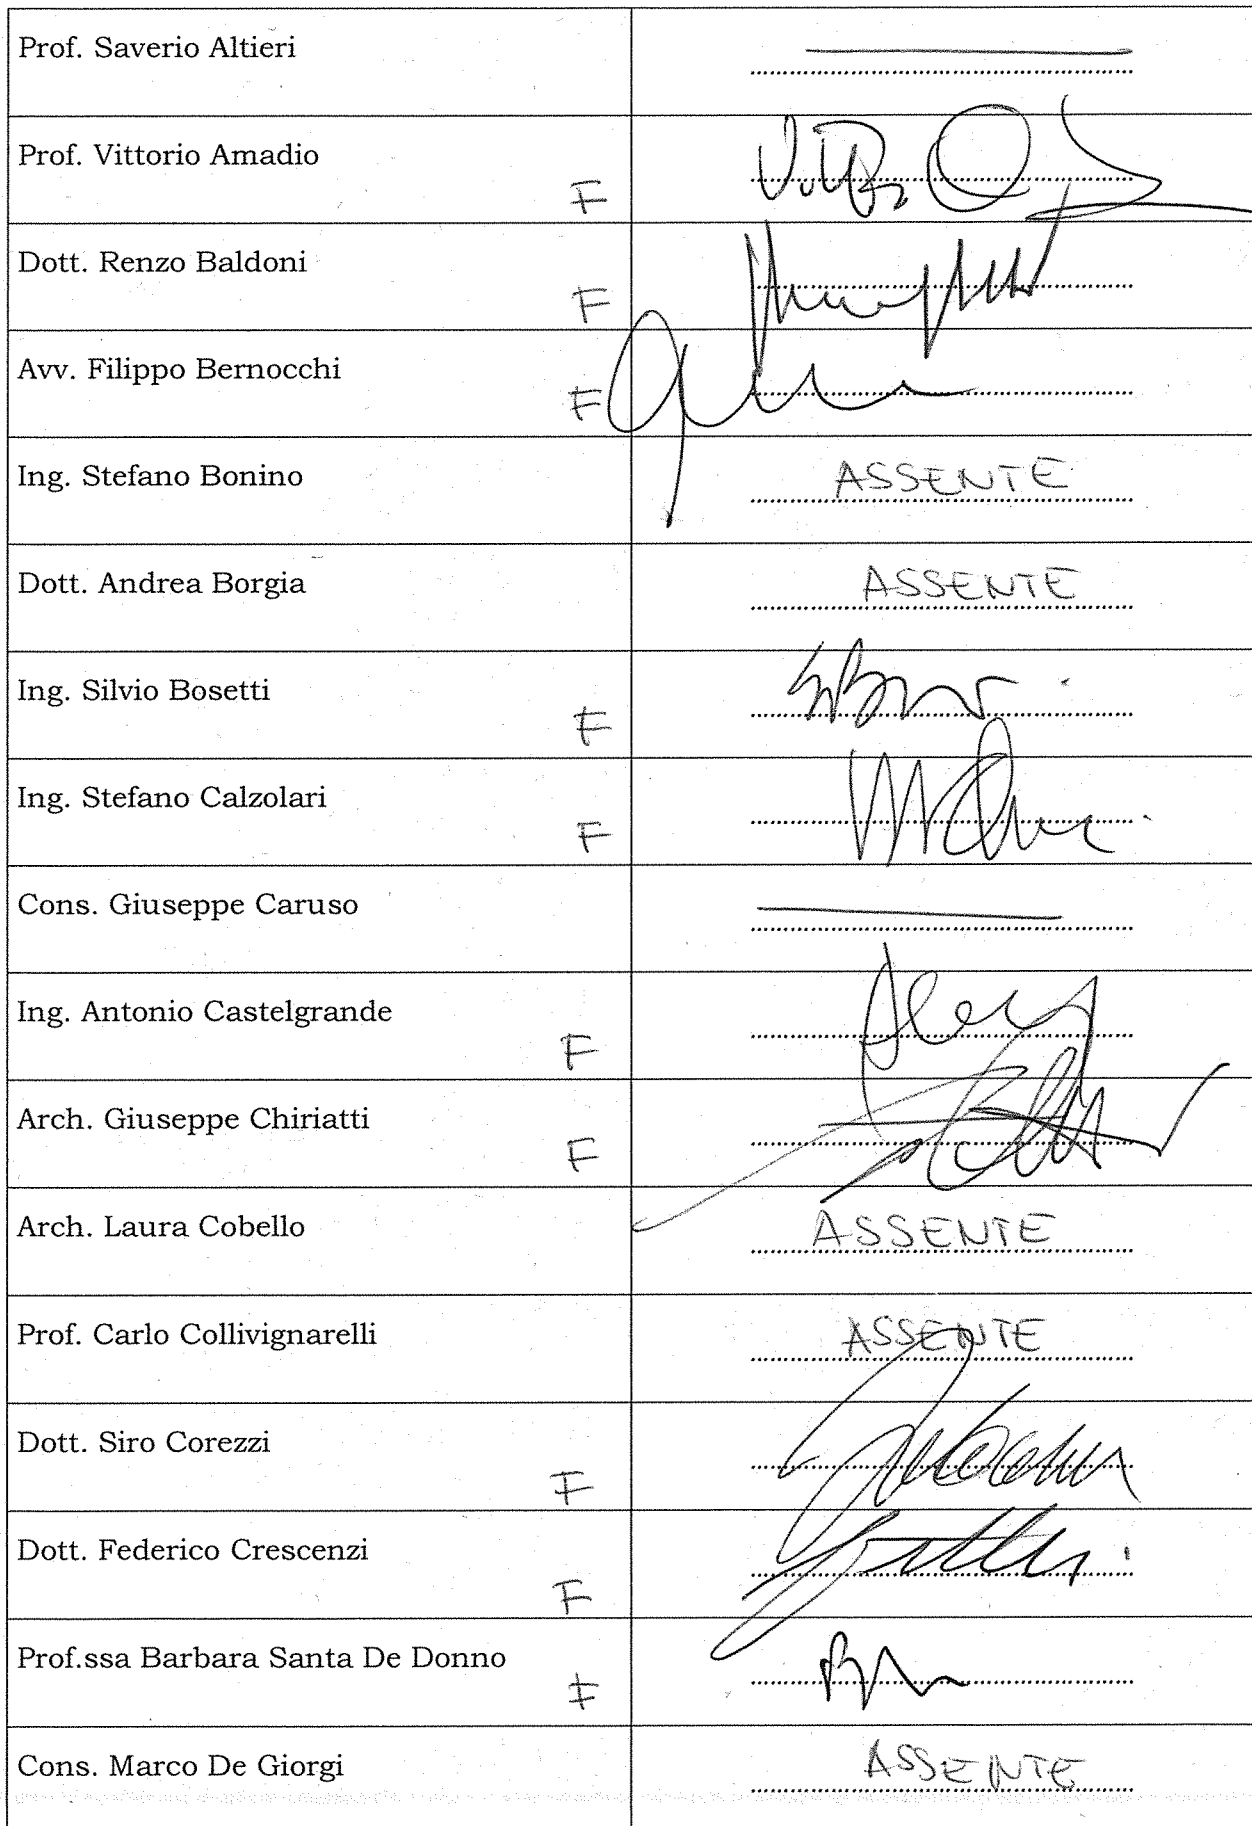 Prof. Saverio Altieri
Prof. Vittorio Amadio
F
Dott. Renzo Baldoni
F
Avv. Filippo Bernocchi
F
Ing. Stefano Bonino ASSENTE
Dott. Andrea Borgia ASSENTE
Ing. Silvio Bosetti
F
Ing. Stefano Calzolari
F
Cons. Giuseppe Caruso
Ing. Antonio Castelgrande
F
Arch. Giuseppe Chiriatti
F
Arch. Laura Cobello ASSENTE
Prof. Carlo Collivignarelli ASSENTE
Dott. Siro Corezzi
F
Dott. Federico Crescenzi
F
Prof.ssa Barbara Santa De Donno
F
Cons. Marco De Giorgi ASSENTE